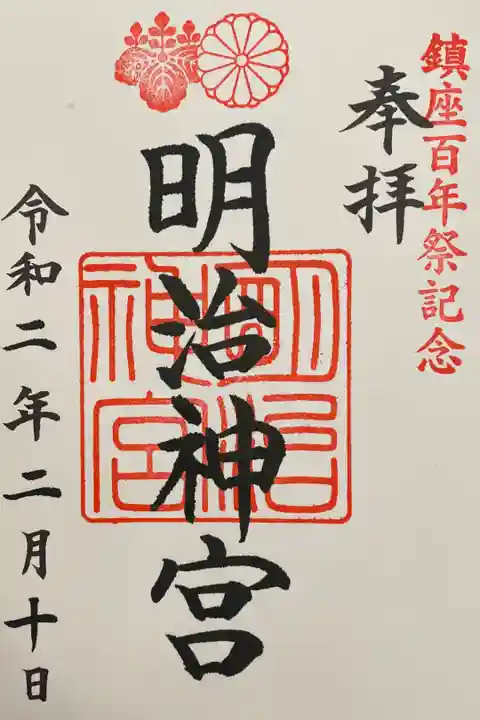 鎮座百年祭記念
奉拝
明治神宮
明治神宮
令和二年二月十日